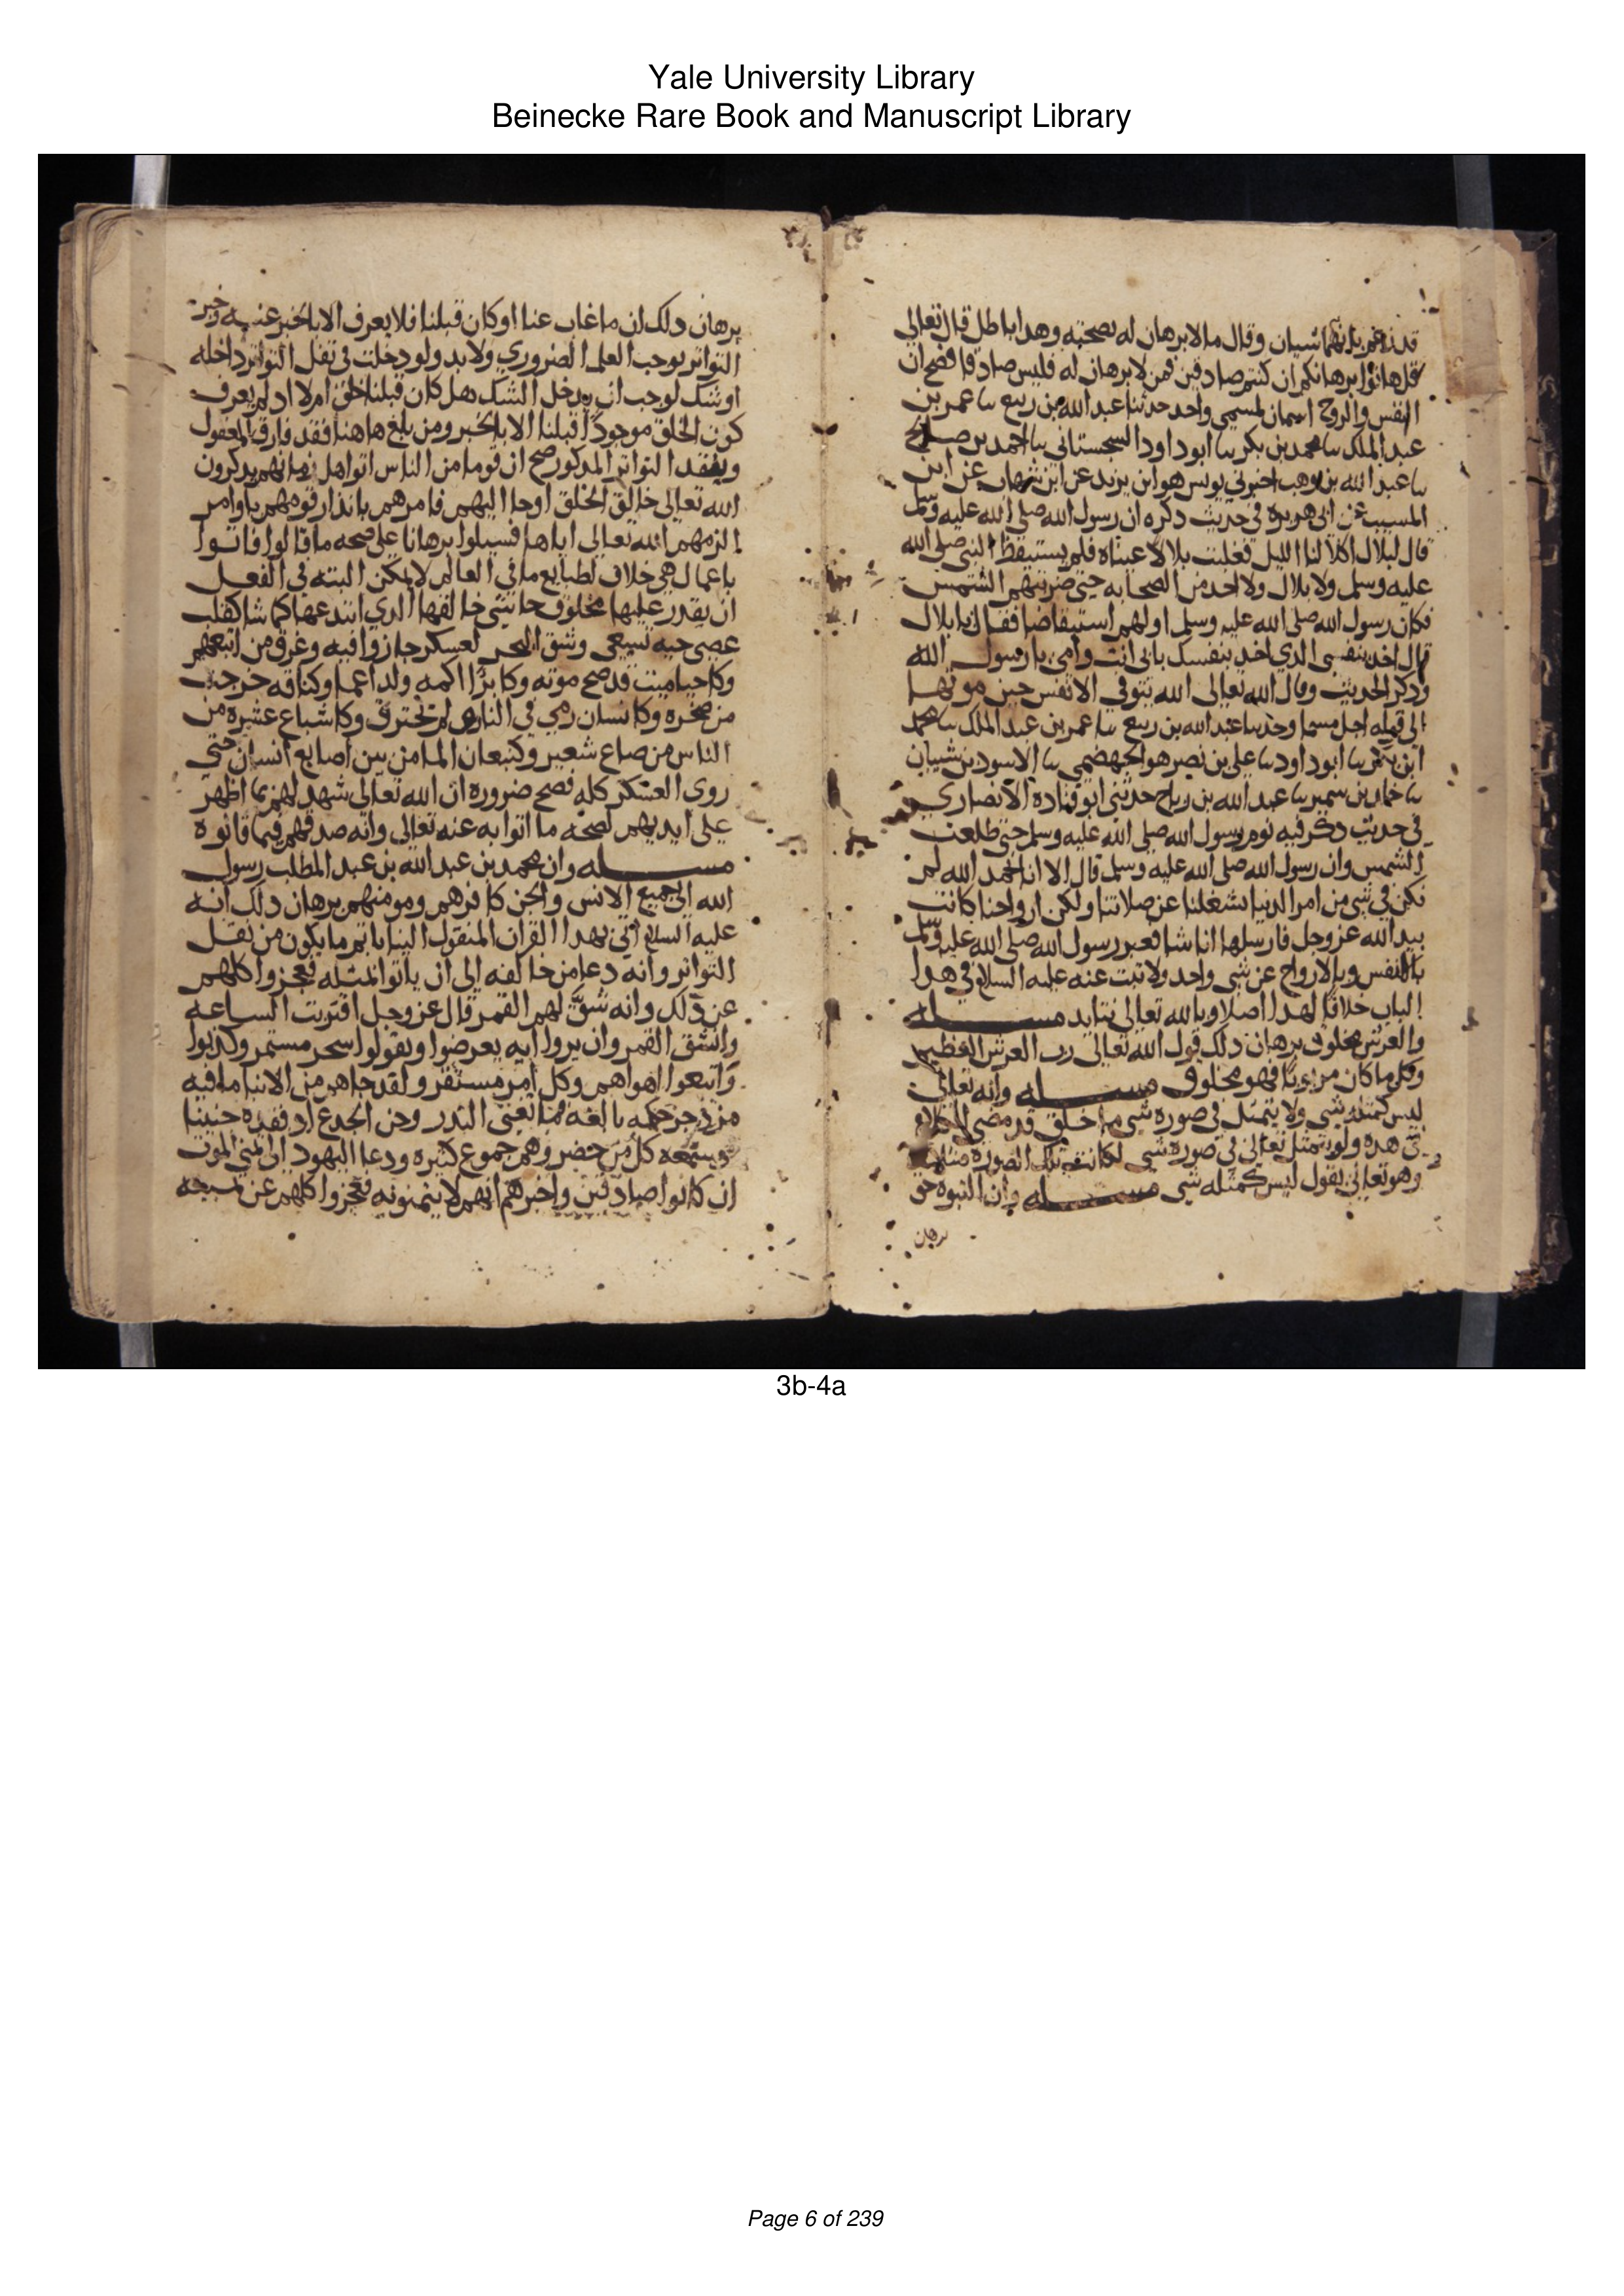 Yale University Library
Beinecke Rare Book and Manuscript Library
قد زعم بانهما شيان وقال ما لا برهان له بصحته وهدا باطل قال تعالى
قل هاتوا برهانكم ان كنتم صادقين فمن لا برهان له فليس صادقا فصح ان
النفس والروح اسمان لمسمي واحد حدثنا عبد الله بن ربيع سا عمر بن
عبد الملك سا محمد بن بكر سا ابو داود السجستاني سا احمد بن صالح
سا عبد الله بن وهب اخبرني يونس هو ابن يزيد عن ابن شهاب عن ابن
المسيب عن ابى هريرة في حديث دكره ان رسول الله صلى الله عليه وسلم
قال لبلال اكلا لنا الليل فغلبت بلالا عيناه فلم يستيقظ النبي صلى الله
عليه وسلم ولا بلال ولا احد من الصحابه حتى ضربتهم الشمس
فكان رسول الله صلى الله عليه وسلم اولهم استيقاضا فقال يا بلال
قال اخد بنفسى الدي اخد بنفسك بابى انت وامى يا رسول الله
ودكر الحديث وقال الله تعالى الله يتوفي الانفس حين موتها
الى قوله اجل مسما وحدثنا عبد الله بن ربيع سا عمر بن عبد الملك سا محمد
ابن بكر سا ابو داود سا على بن نصر هو الجهضمي سا الاسود بن شيبان
سا خالد بن سمير سا عبد الله بن رباح حدثنى ابو قتادة الانصاري
في حديث دكر فيه نوم رسول الله صلى الله عليه وسلم حتى طلعت
الشمس وان رسول الله صلى الله عليه وسلم قال الا انا نحمد الله لم
نكن في شي من امر الدنيا شغلنا عن صلاتنا ولكن ارواحنا كانت
بيد الله عز وجل فارسلها انا شا فعبر رسول الله صلى الله عليه وسلم
بالانفس وبالارواح عن شي واحد ولا ثبت عنه عليه السلام في هدا
الباب خلافا لهدا اصلا وبالله تعالى نتايد مسله
والعرش مخلوق برهان دلك قول الله تعالى رب العرش العظيم
وكل ما كان مربوبا فهو مخلوق مسله وانه تعالى
ليس كمثله شي ولا يتمثل في صوره شي مما خلق قد مضى الكلام
في هده ولو تمثل تعالى في صوره شي لكانت تلك الصوره مثلا له
وهو تعالى يقول ليس كمثله شي مسله وان النبوه حق
برهان
برهان دلك ان ما غاب عنا او كان قبلنا فلا يعرف الا بالخبر عنه وخبر
التواتر يوجب العلم الضروري ولا بد ولو دخلت في نقل التواتر داخله
او شك لوجب ان يدخل الشك هل كان قبلنا خلق ام لا اد لم يعرف
كون الخلق موجودا قبلنا الا بالخبر ومن بلغ هاهنا فقد فارق المعقول
وبنقل التواتر المدكور صح ان قوما من الناس اتوا اهل زمانهم يدكرون
الله تعالى خالق الخلق اوحا اليهم فامرهم بانذار قومهم باوامر
الزمهم الله تعالى اياها فسيلوا برهانا على صحه ما قالوا فاتوا
باعمال هي خلاف لطبايع ما في العالم لا يمكن البته في الفعل
ان يقدر عليها مخلوق حاشي خالقها الدي ابتدعها كما شا كقلب
عصى حيه تسعى وشق البحر لعسكر جازوا فيه وغرق من اتبعهم
وكاحيا ميت قد صح موته وكابرا اكمه ولد اعما وكناقه خرجت
من صخره وكانسان رمي في النار لم تحترق وكاشباع عشيره من
الناس من صاع شعير وكنبعان الما من بين اصابع انسان حتى
روى العسكر كله فصح ضروره ان الله تعالى شهد لهم بما اظهر
على ايديهم لصحه ما اتوا به عنه تعالى وانه صدقهم فيما قالوه
مسله وان محمد بن عبد الله بن عبد المطلب رسول
الله الى جميع الانس والجن كافرهم ومومنهم برهان دلك انه
عليه السلام اتى بهدا القران المنقول الينا باتم ما يكون من نقل
التواتر وانه دعا من خالفه الى ان ياتوا بمثله فعجزوا كلهم
عن ذلك وانه شق لهم القمر قال عز وجل اقتربت الساعه
وانشق القمر وان يروا ايه يعرضوا ويقولوا سحر مستمر وكدبوا
واتبعوا اهواهم وكل امر مستقر ولقد جاهم من الانبا ما فيه
مزدجر حكمه بالغه فما تغنى الندر وحن الجدع اد فقده حنينا
وسمعه كل من حضر وهم جموع كثيره ودعا اليهود الى تمني الموت
ان كانوا صادقين واخبرهم انهم لا يتمنونه فعجزوا كلهم عن
3b-4a
Page 6 of 239